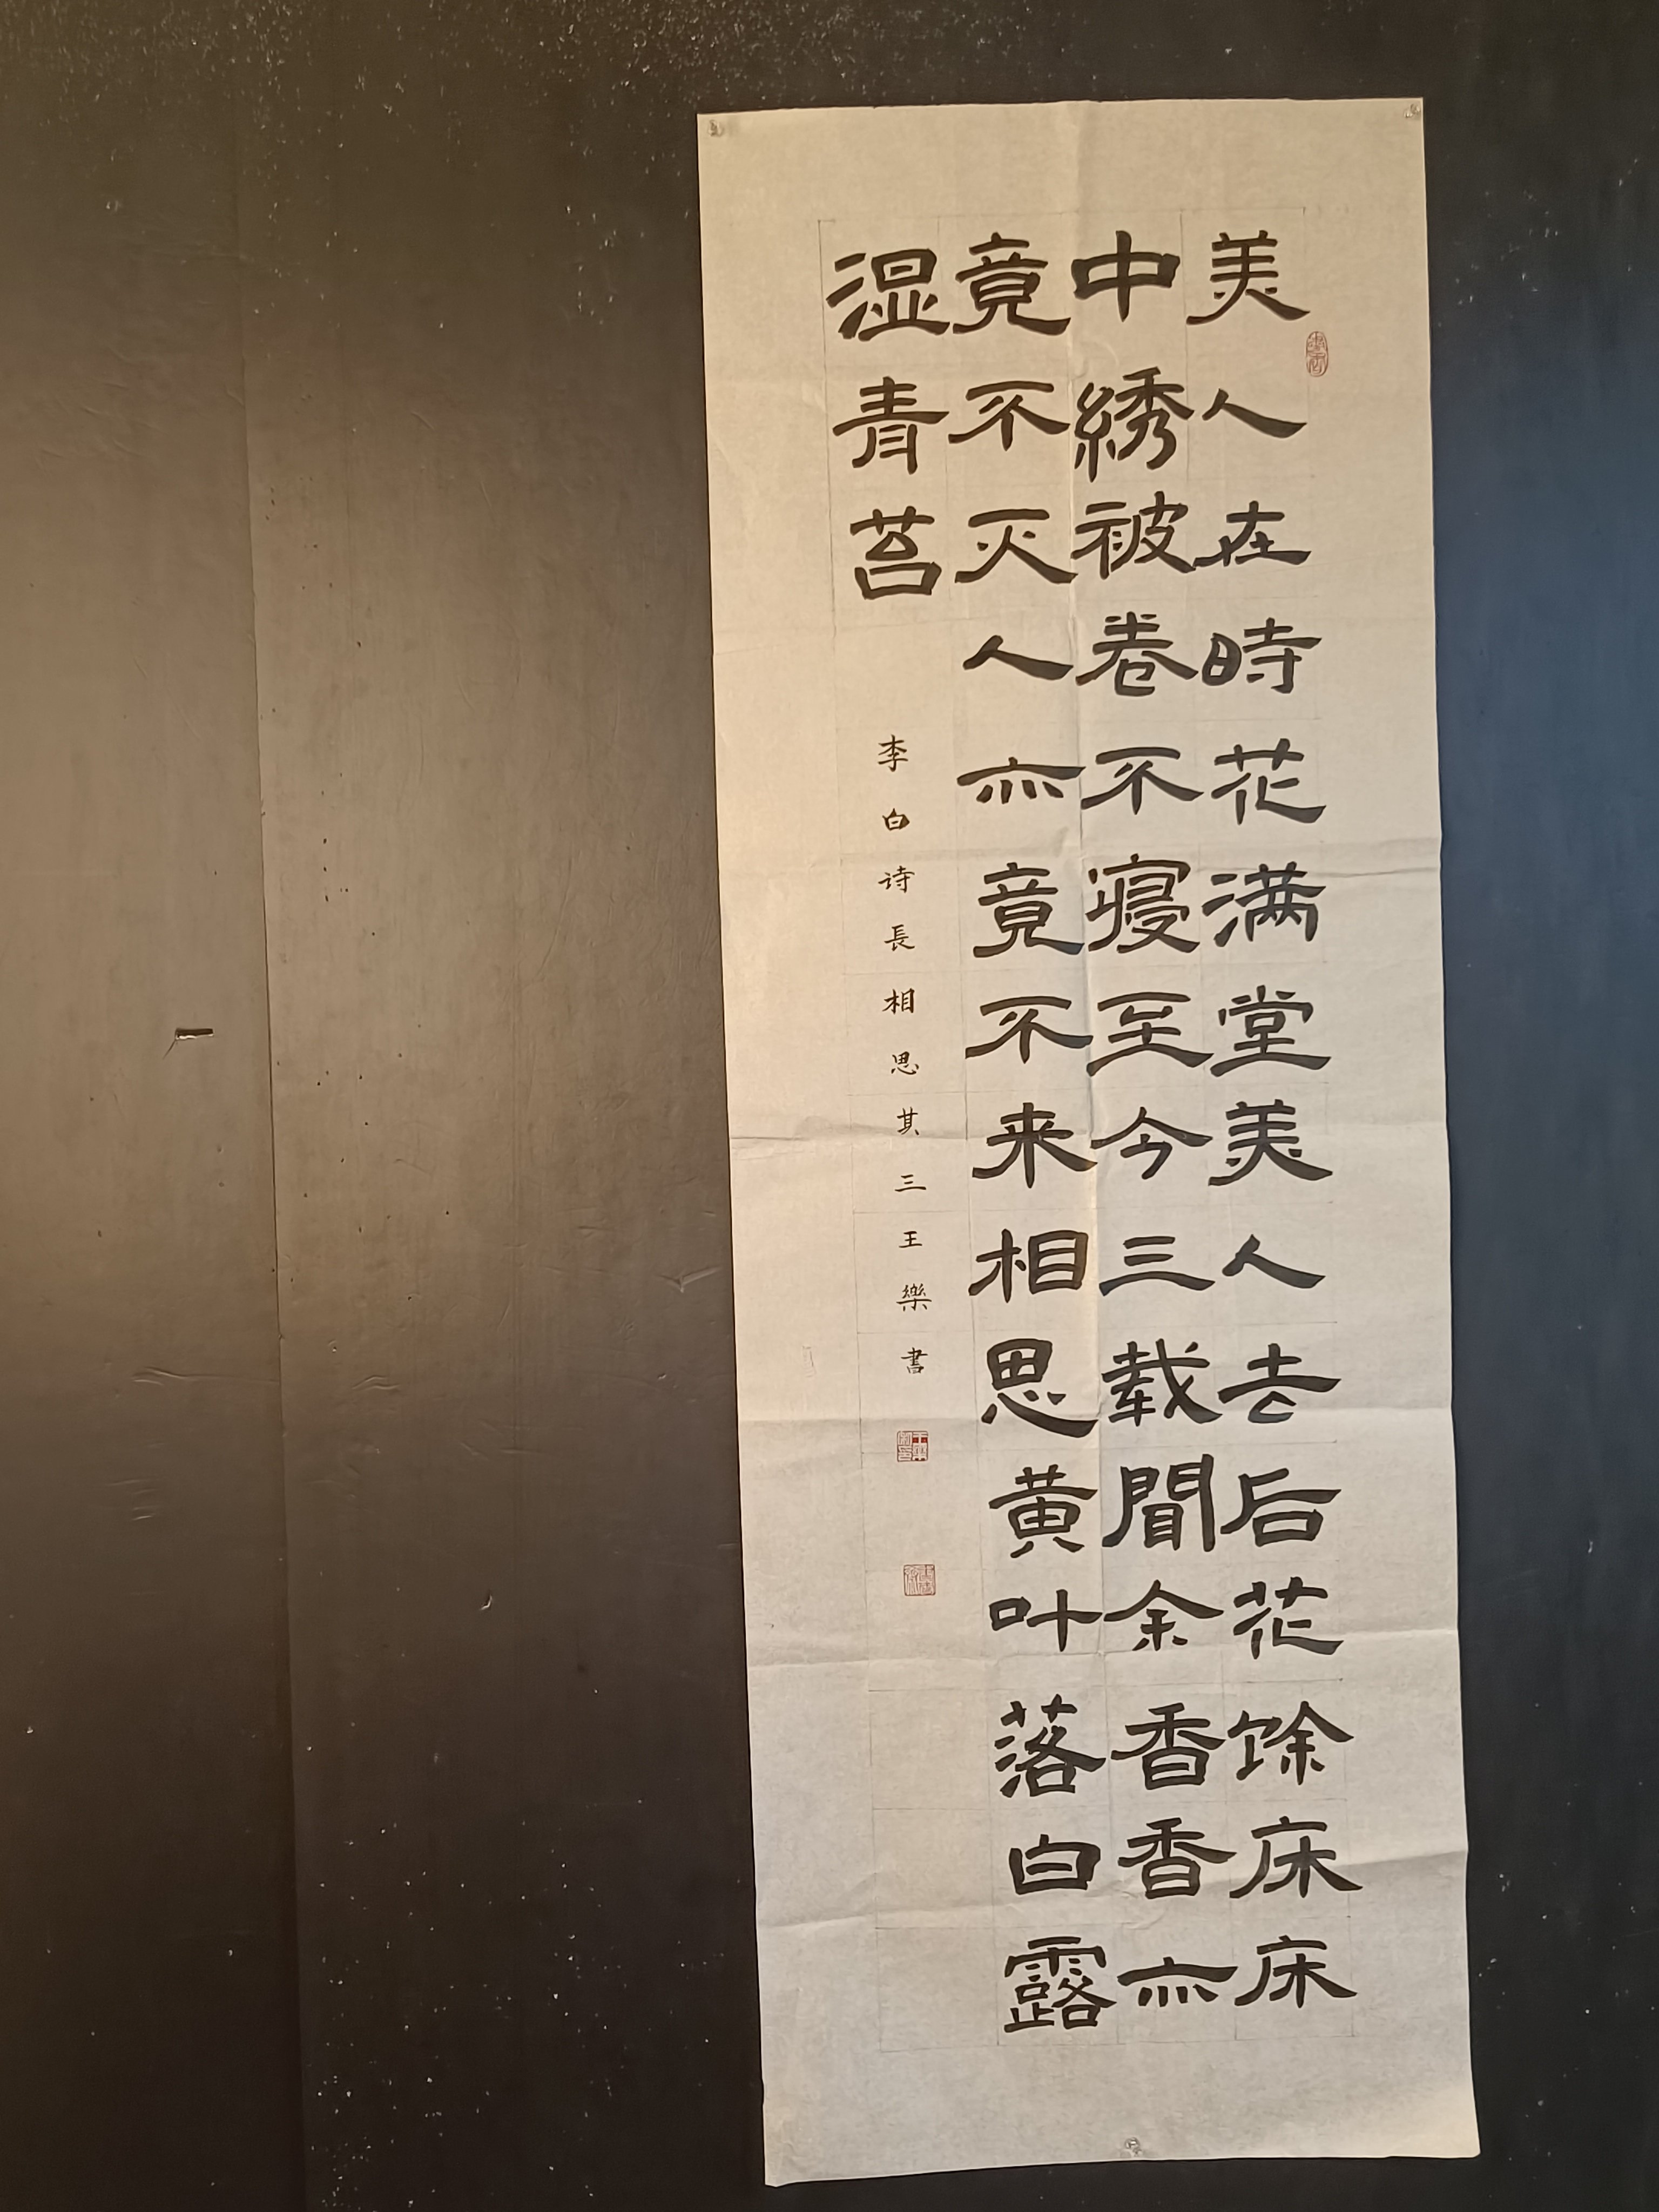 美人在時花满堂美人去后花馀床床
中綉被卷不寝至今三载聞余香香亦
竟不灭人亦竟不来相思黄叶落白露
湿青苔
李白诗長相思其三王樂書